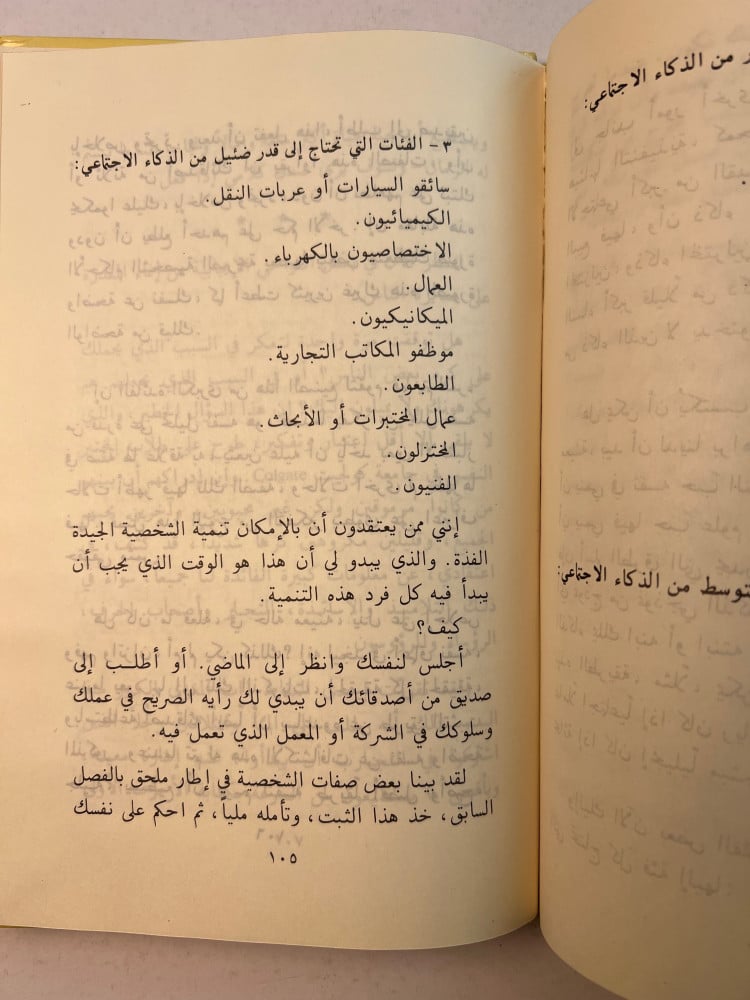 ٣ - الفئات التي تحتاج إلى قدر ضئيل من الذكاء الاجتماعي:
سائقو السيارات أو عربات النقل.
الكيميائيون.
الاختصاصيون بالكهرباء.
العمال.
الميكانيكيون.
موظفو المكاتب التجارية.
الطابعون.
عمال المختبرات أو الأبحاث.
المختزلون.
الفنيون.
إنني ممن يعتقدون أن بالإمكان تنمية الشخصية الجيدة
الفذة. والذي يبدو لي أن هذا هو الوقت الذي يجب أن
يبدأ فيه كل فرد هذه التنمية.
كيف؟
أجلس لنفسك وانظر إلى الماضي. أو أطلب إلى
صديق من أصدقائك أن يبدي لك رأيه الصريح في عملك
وسلوكك في الشركة أو المعمل الذي تعمل فيه.
لقد بينا بعض صفات الشخصية في إطار ملحق بالفصل
السابق، خذ هذا الثبت، وتأمله ملياً، ثم احكم على نفسك
١٠٥
من الذكاء الاجتماعي:
من الذكاء الاجتماعي: